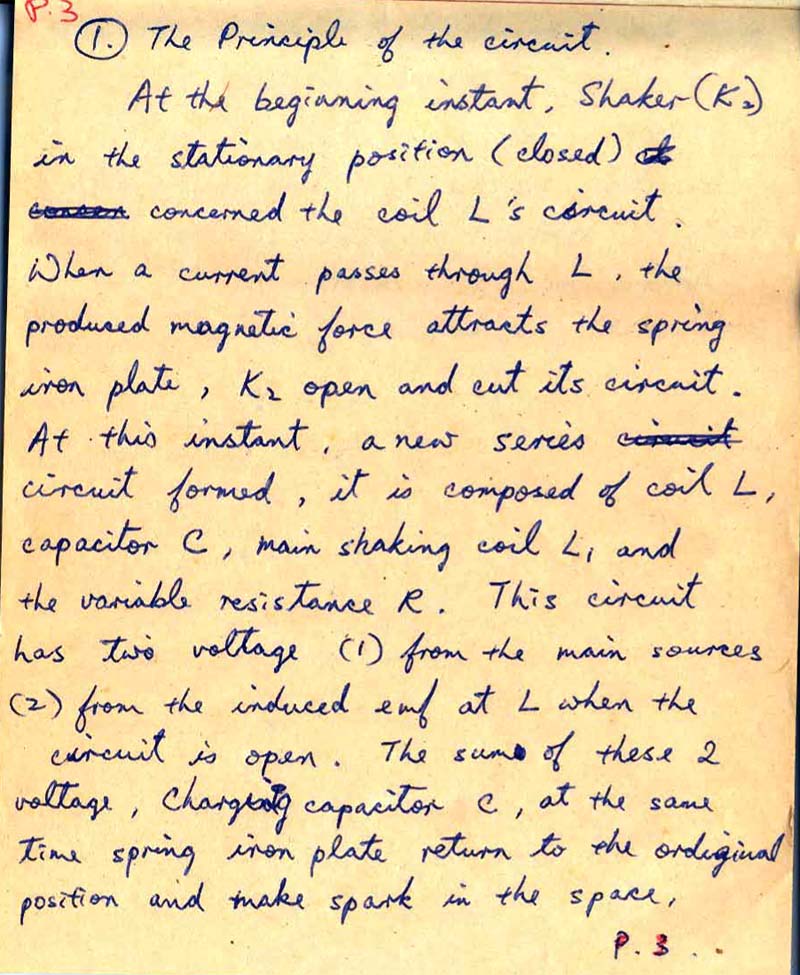 P.3
1. The Principle of the circuit.
At the beginning instant, Shaker (K₂)
in the stationary position (closed)
concerned the coil L's circuit.
When a current passes through L, the
produced magnetic force attracts the spring
iron plate, K₂ open and cut its circuit.
At this instant, a new series circuit
circuit formed, it is composed of coil L,
capacitor C, main shaking coil L₁ and
the variable resistance R. This circuit
has two voltage (1) from the main sources
(2) from the induced emf at L when the
circuit is open. The sum of these 2
voltage, Charging capacitor C, at the same
time spring iron plate return to the ordiginal
position and make spark in the space,
P.3..